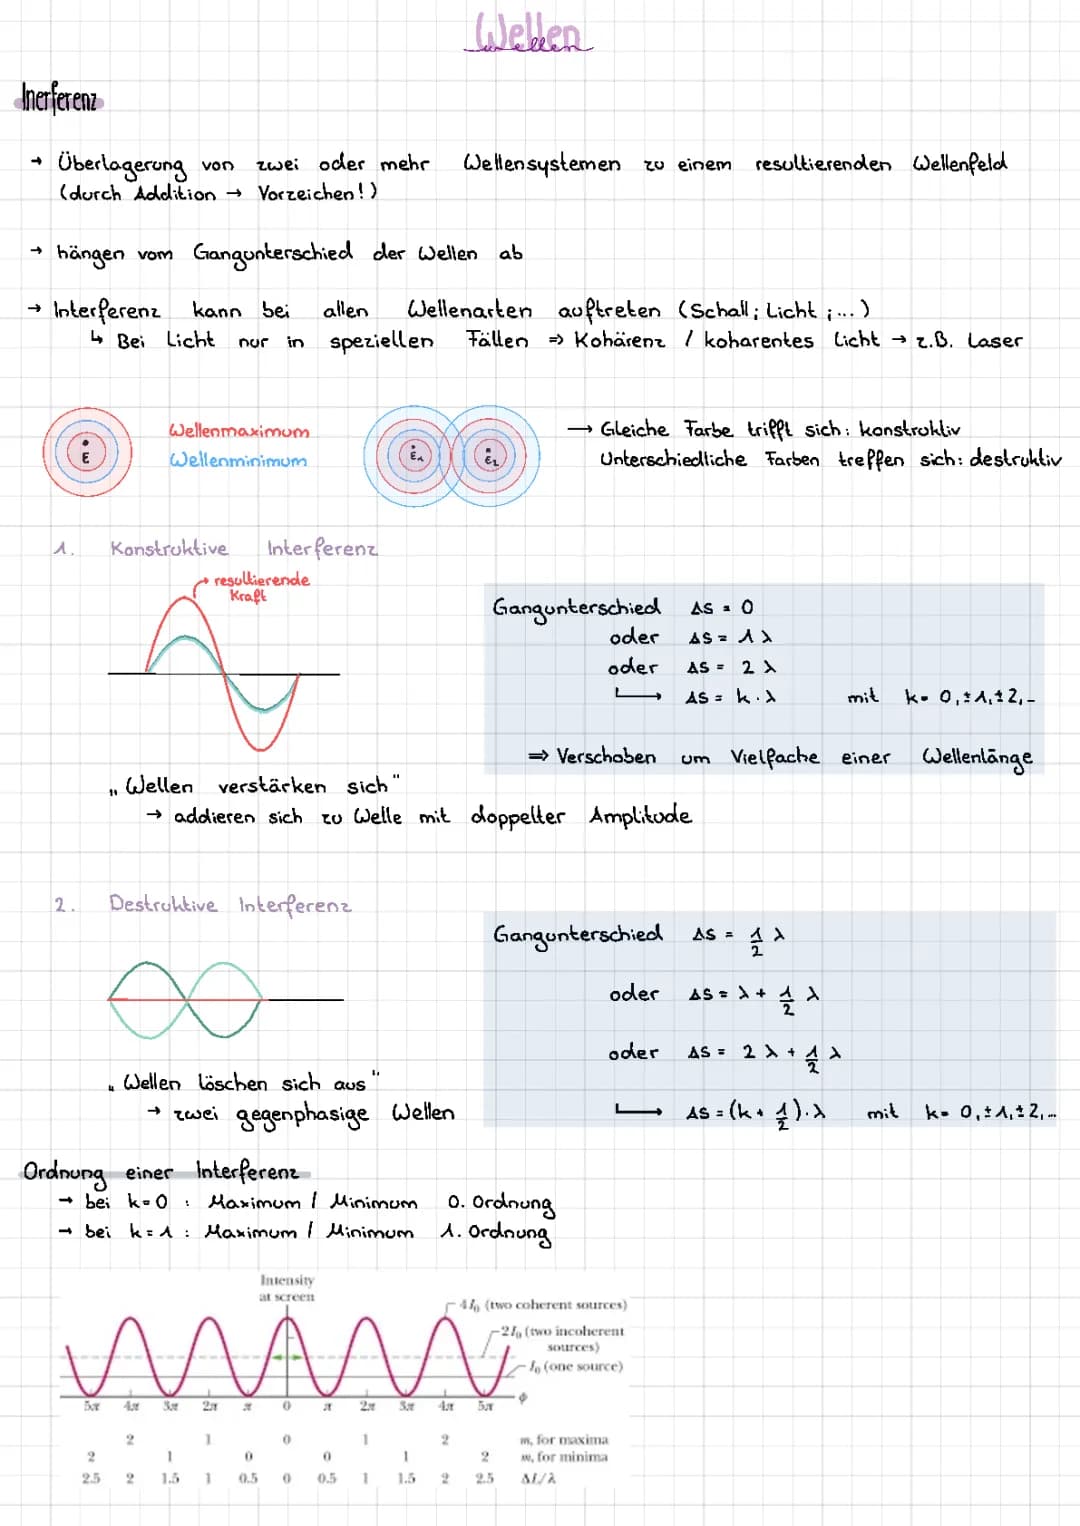 Wellen
wellen
Inerferenz
→ Überlagerung von zwei oder mehr Wellensystemen zu einem resultierenden Wellenfeld
(durch Addition → Vorzeichen!)
→ hängen vom Gangunterschied der Wellen ab
→ Interferenz kann bei allen Wellenarten auftreten (Schall; Licht ;...)
↳ Bei Licht nur in speziellen Fällen ⇒ Kohärenz / koharentes Licht → z.B. Laser
Wellenmaximum
Wellenminimum
E
E1
E2
→ Gleiche Farbe trifft sich: konstruktiv
Unterschiedliche Farben treffen sich: destruktiv
1. Konstruktive Interferenz
resultierende
Kraft
Gangunterschied Δs = 0
oder Δs = 1 λ
oder Δs = 2 λ
↳ Δs = k · λ mit k = 0, ±1, ±2, ...
⇒ Verschoben um Vielfache einer Wellenlänge
„Wellen verstärken sich"
→ addieren sich zu Welle mit doppelter Amplitude
2. Destruktive Interferenz
Gangunterschied Δs = 1/2 λ
oder Δs = λ + 1/2 λ
oder Δs = 2 λ + 1/2 λ
↳ Δs = (k + 1/2) · λ mit k = 0, ±1, ±2, ...
„Wellen löschen sich aus"
→ zwei gegenphasige Wellen
Ordnung einer Interferenz
→ bei k = 0 : Maximum / Minimum 0. Ordnung
→ bei k = 1 : Maximum / Minimum 1. Ordnung
Intensity
at screen
4I0 (two coherent sources)
2I0 (two incoherent
sources)
I0 (one source)
5π 4π 3π 2π π 0 π 2π 3π 4π 5π ϕ
2 1 0 1 2 m, for maxima
2 1 0 0 1 2 m, for minima
2.5 2 1.5 1 0.5 0 0.5 1 1.5 2 2.5 ΔL/λ